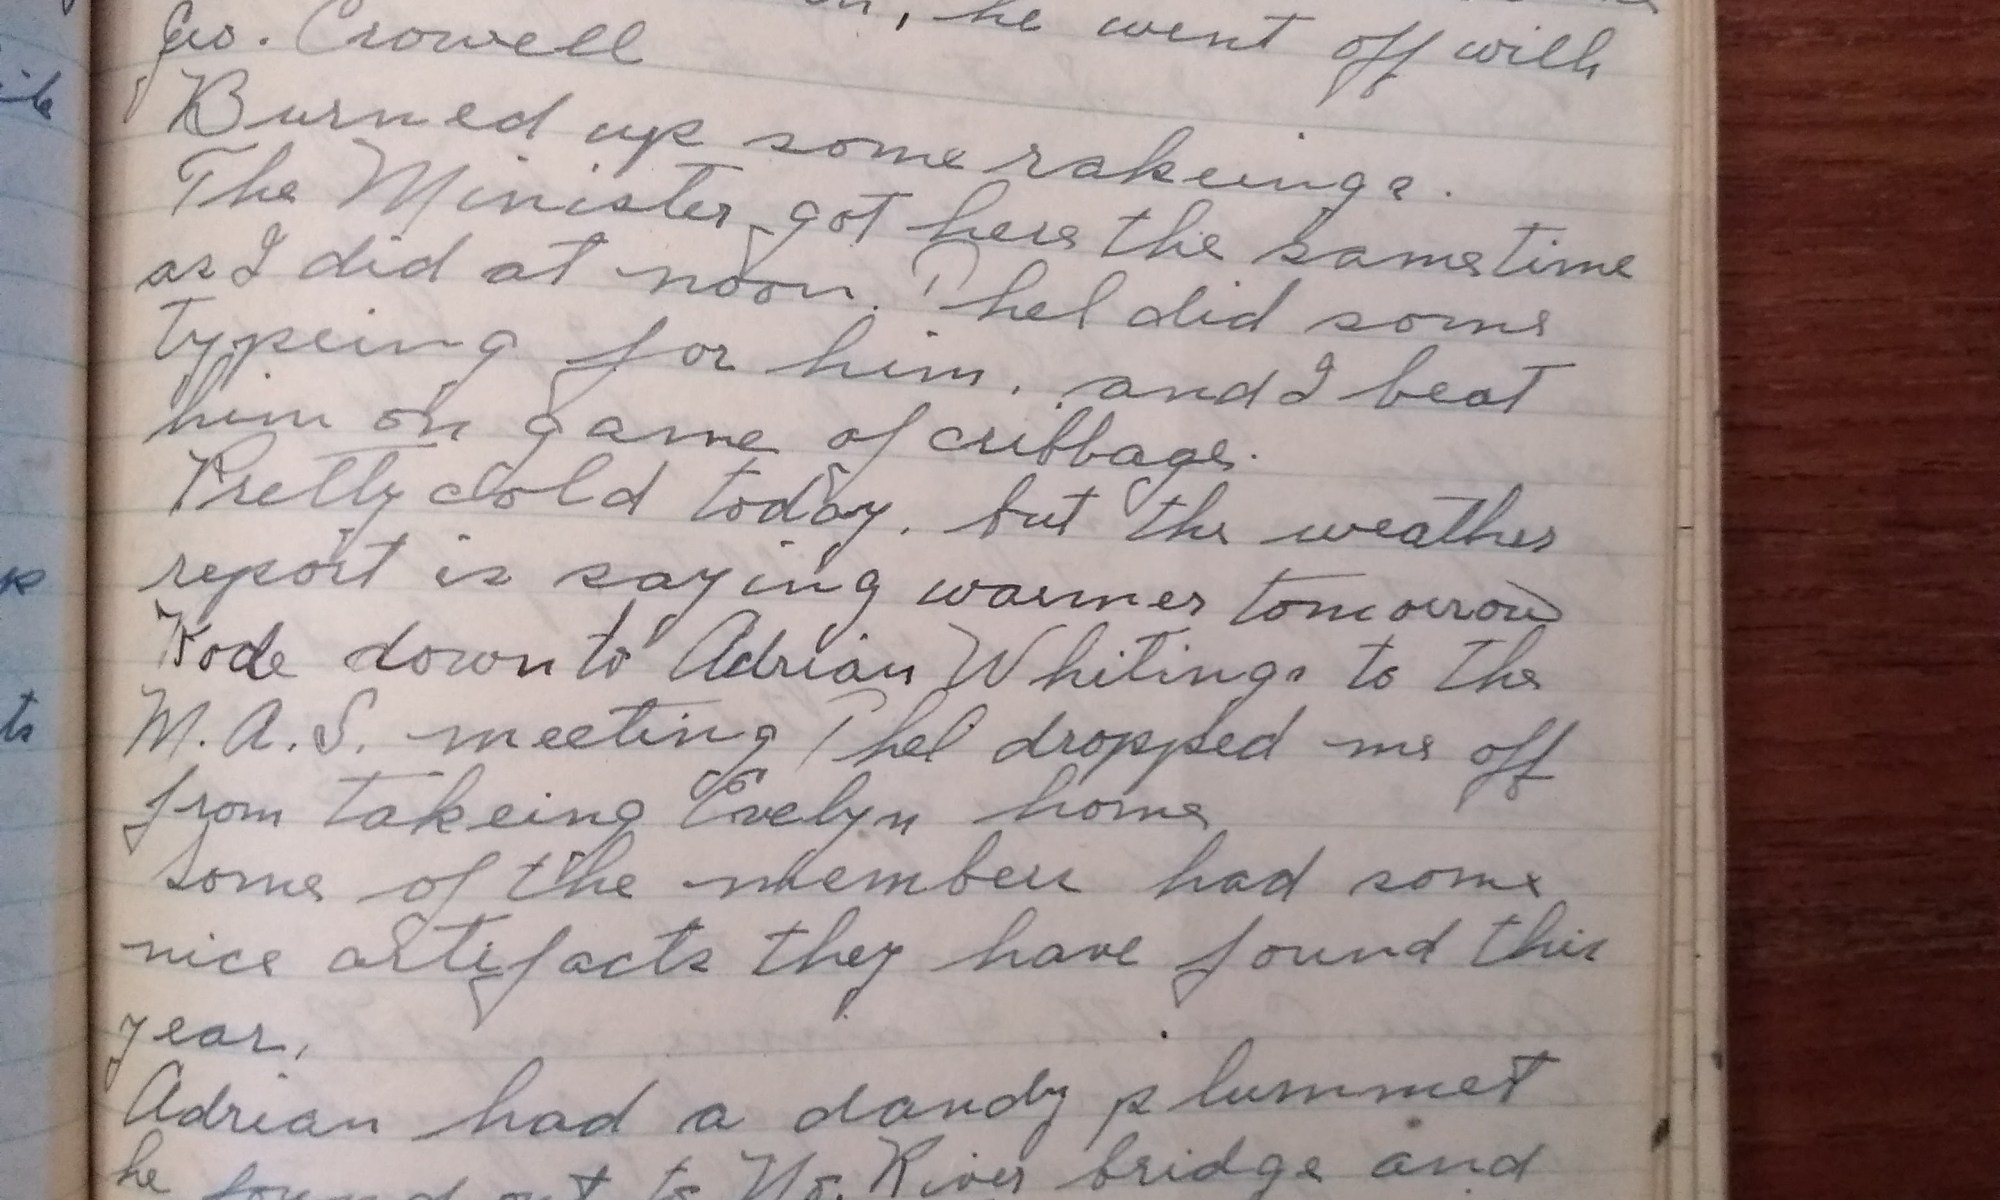 he went off with
Geo. Crowell
Burned up some rakeings.
The Minister got here the same time
as I did at noon. Phel did some
typeing for him, and I beat
him on game of cribbage.
Pretty cold today, but the weather
report is saying warmer tomorrow
Rode down to Adrian Whitings to the
M.A.S. meeting Phel dropped me off
from takeing Evelyn home
Some of the members had some
nice artifacts they have found this
year,
Adrian had a dandy plummet
he found out to No. River bridge and